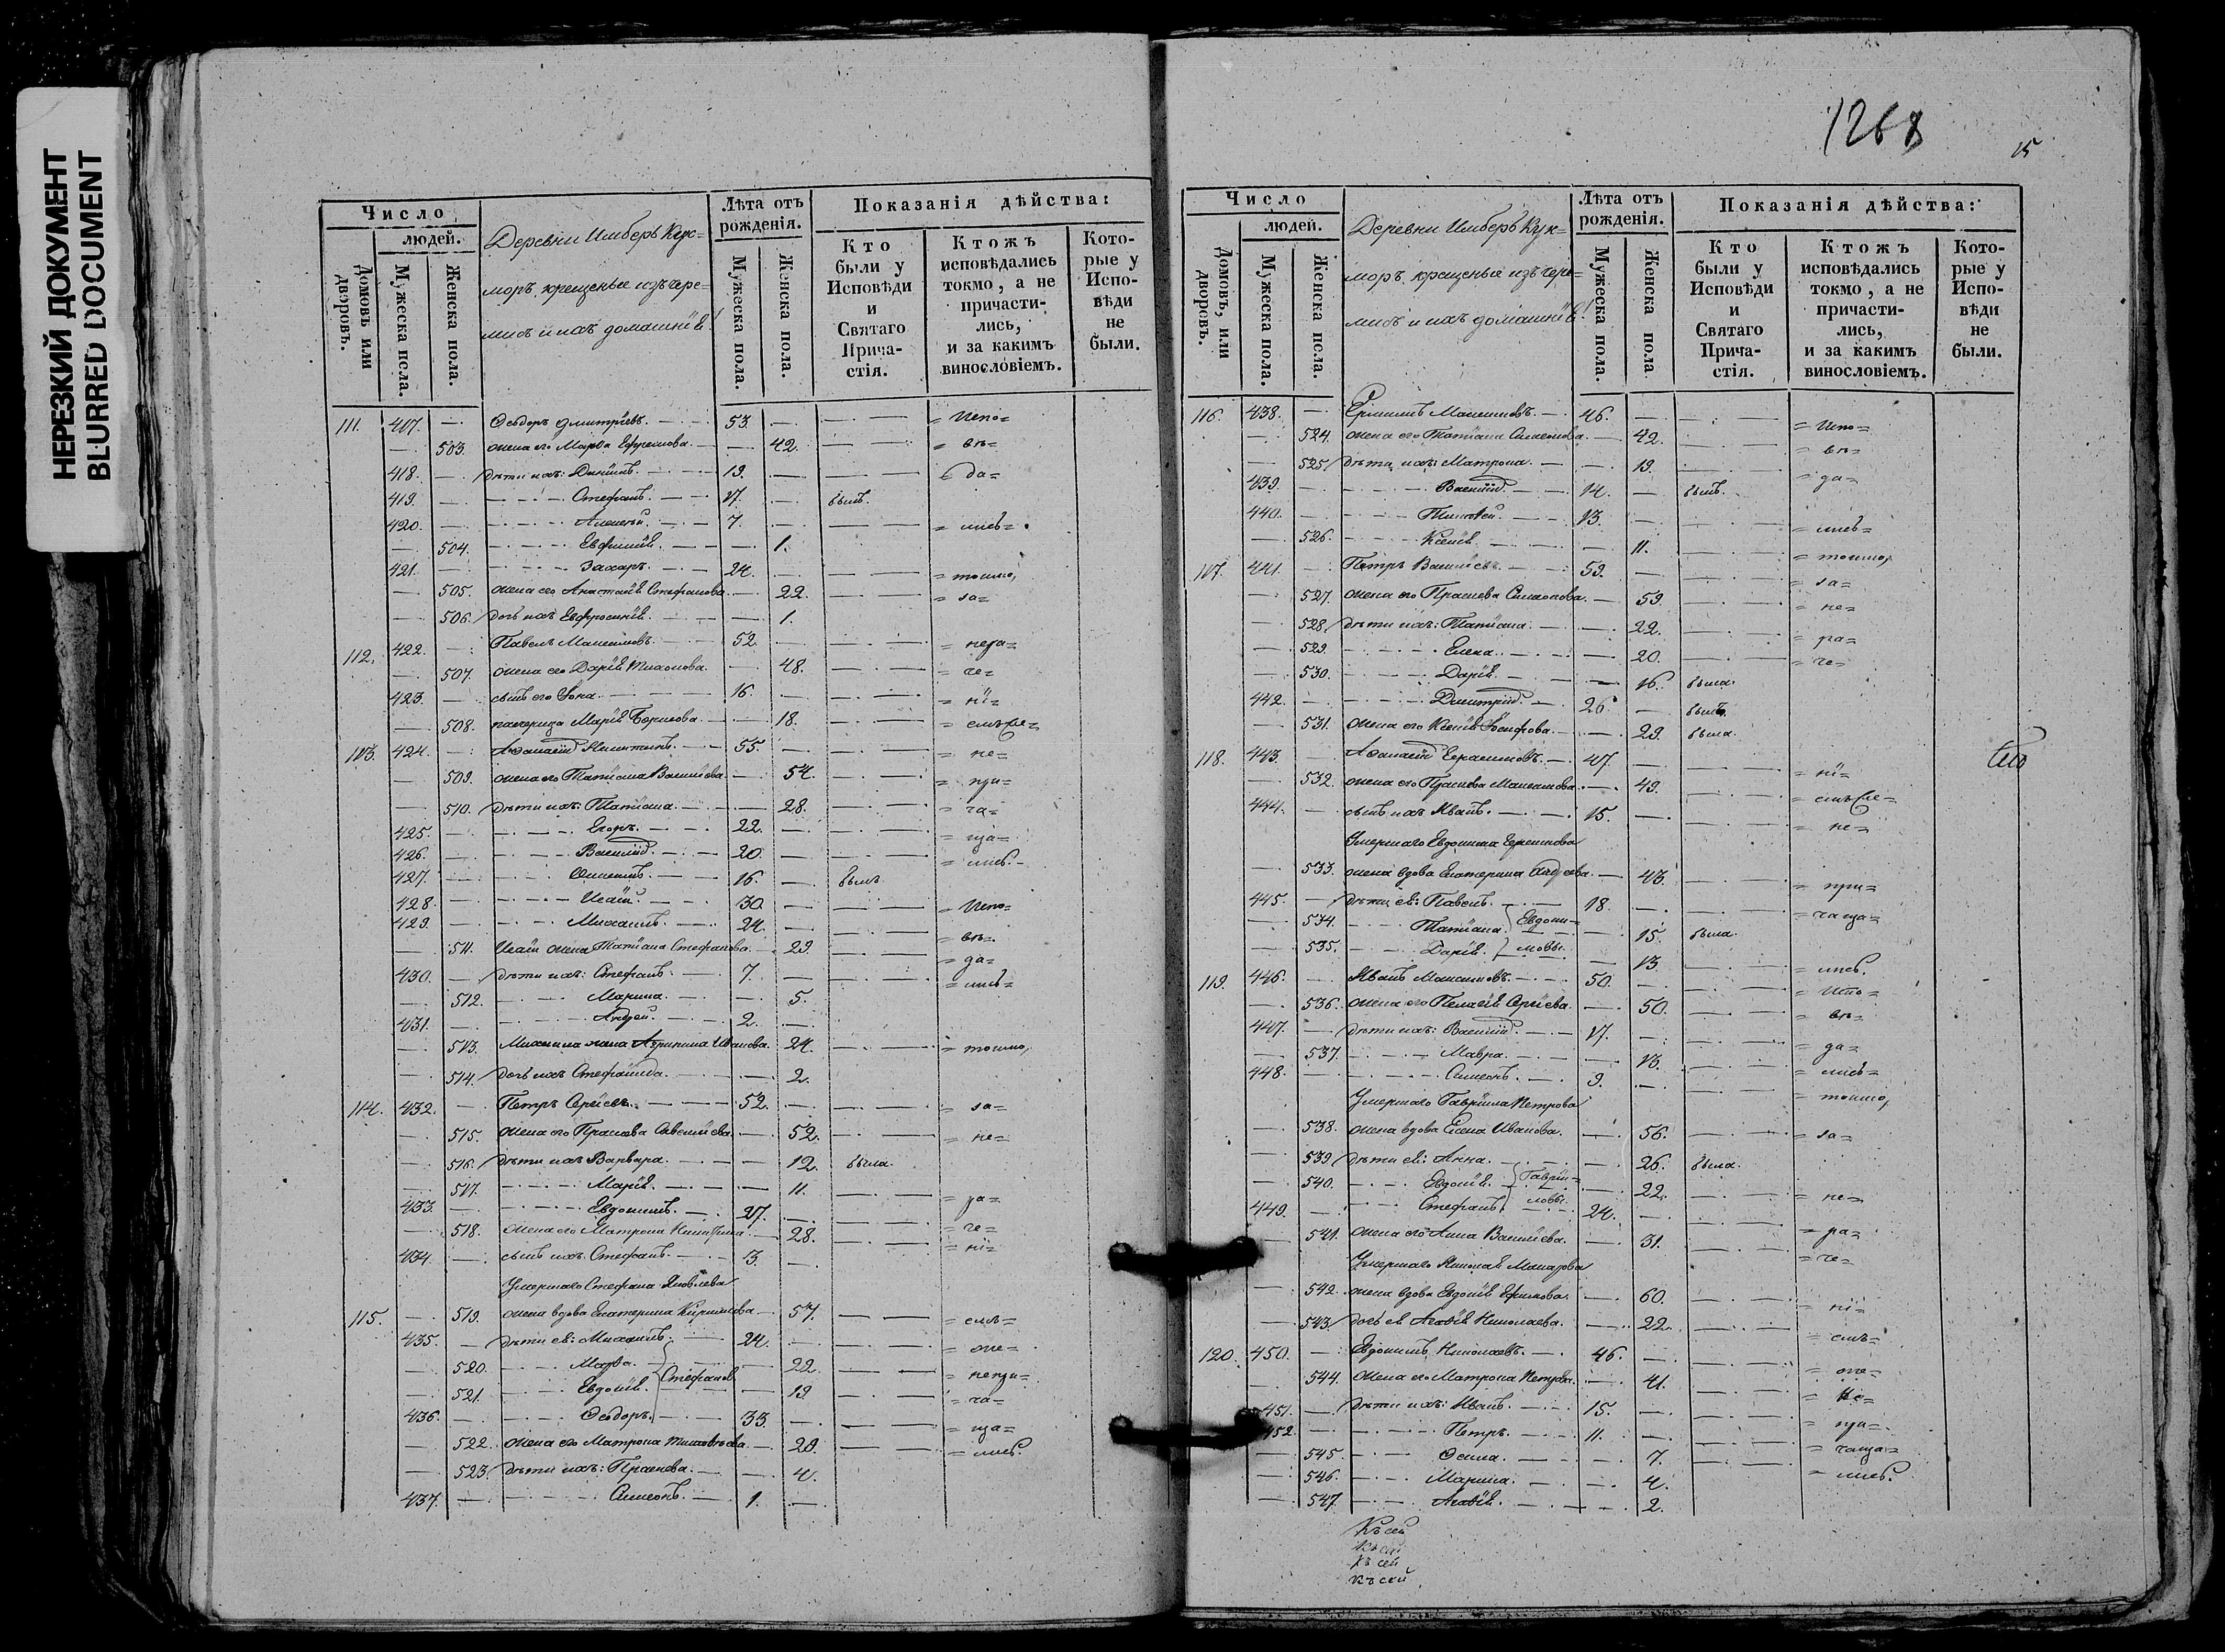 НЕРЕЗКИЙ ДОКУМЕНТ
BLURRED DOCUMENT
Число
Домовъ или дворовъ.
людей.
Мужеска пола.
Женска пола.
Деревни Имберъ Кук=
моръ, крещеные изъ чере=
мисъ и ихъ домашніѣ!
Лѣта отъ рожденія.
Мужеска пола.
Женска пола.
Показанія дѣйства:
Кто были у Исповѣди и Святаго Прича-стія.
Ктожъ исповѣдались токмо, а не причасти-лись, и за какимъ винословіемъ.
Кото-рые у Испо-вѣди не были.
111. 417. — Ѳеодоръ Дмитріевъ. 53. — = Испо=
— 503. жена его Марѳа Ефремова. — 42. = вѣ=
418. — дѣти ихъ: Данiилъ. 19. — = да=
419. — Стефанъ. 17. — былъ.
420. — Алексѣй. 7. — = лись=
— 504. Евфимія. — 1.
421. — Захаръ. 24. — = токмо,
— 505. жена его Анастасія Стефанова. — 22. = за=
— 506. дочь ихъ Евфросинія. — 1.
112. 422. — Павелъ Максимовъ. 52. — = нера=
— 507. жена его Дарія Тихонова. — 48. = че=
423. — сынъ его Іона. 16. — = ні=
— 508. падчерица Марія Борисова. — 18. = емъ же=
113. 424. — Аѳанасій Никитинъ. 55. — = не=
— 509. жена его Татіана Васильева. — 54. = при=
— 510. дѣти ихъ: Татіана. — 28. = ча=
425. — Егоръ. 22. — = ща=
426. — Василій. 20. — = лись.
427. — 16. — былъ
428. — Исаія. 30. — = Испо=
429. — Михаилъ. 24. — = вѣ=
— 511. Исаіи жена Татіана Стефанова. — 29. = да=
430. — дѣти ихъ: Стефанъ. 7. — = лись=
— 512. Марина. — 5.
431. — Андрей. 2. —
— 513. Михаила жена Агрипина Иванова. 24. = токмо,
— 514. дочь ихъ Стефанида. — 2.
114. 432. — Петръ Сергіевъ. 52. — = за=
— 515. жена его Прасковья Савельева. — 52. = не=
— 516. дѣти ихъ Варвара. — 12. была.
— 517. Марія. — 11. = ра=
433. — Евдокимъ. 27. — = че=
— 518. жена его Матрона Никитина. — 28. = ні=
434. — сынъ ихъ Стефанъ. 3. —
Умершаго Стефана Яковлева
115. — 519. жена вдова Екатерина Кирилова. — 57. = емъ=
435. — дѣти ея: Михаилъ. 24. — = оже=
— 520. Марѳа. — 22. = непри=
— 521. Евдокія. Стефанов. — 19 = ча=
436. — Ѳеодоръ. 33. — = ща=
— 522. жена его Матрона Тимоѳеева. — 28. = лись
— 523. дѣти ихъ: Праскева. — 4.
437. — Симеонъ. 1. —
1268
15
Число
Домовъ, или дворовъ.
людей.
Мужеска пола.
Женска пола.
Деревни Имберъ Кук=
моръ, крещеные изъ чере=
мисъ и ихъ домашніѣ!
Лѣта отъ рожденія.
Мужеска пола.
Женска пола
Показанія дѣйства:
Кто были у Исповѣди и Святаго Прича-стія.
Ктожъ исповѣдались токмо, а не причасти-лись, и за какимъ винословіемъ.
Кото-рые у Испо-вѣди не были.
116. 438. — Ермилъ Максимовъ. 46. — = Испо=
— 524. жена его Татіана Симеонова. — 42. = вѣ=
— 525. дѣти ихъ: Матрона. — 19. = да=
439. — Василій. 14. — былъ.
440. — Тимоѳей. 13. — = лись=
— 526. Ксенія. — 11. = токмо,
117. 441. — Петръ Васильевъ. 59. — = за=
— 527. жена его Праскева Симеонова. — 59. = не=
— 528. дѣти ихъ: Татіана. — 22. = ра=
— 529. Елена. — 20. = че=
— 530. Дарія. — 16. была.
442. — Дмитрій. 26. — былъ.
— 531. жена его Ксенія Іосифова. — 29. была.
118. 443. — Аѳанасій Герасимовъ. 47 — = ні=
— 532. жена его Праскева Максимова. — 49. = емъ же=
444. — сынъ ихъ Иванъ. 15. — = не=
Умершаго Евдокима Ефимова
— 533. жена вдова Екатерина Андреева. — 43. = при=
445. — дѣти ея: Павелъ. 18. — = чаща=
— 534. Татіана. Евдоки= — 15. была.
— 535. Дарія. мовы. — 13. = лись.
119. 446. — Иванъ Максимовъ. 50. — = Испо=
— 536. жена его Пелагія Сергіева. — 50. = вѣ=
447. — дѣти ихъ: Василій. 17. — = да=
— 537. Мавра. — 13. = лись=
448. — Симеонъ. 9. — = токмо,
Умершаго Гавріила Петрова
— 538. жена вдова Елена Иванова. — 56. = за=
— 539. дѣти ея: Анна. — 26. была.
— 540. Евдокія. Гавріи= — 22. = не=
449. — Стефанъ. ловы. 24. — = ра=
— 541. жена его Анна Васильева. — 31. = че=
Умершаго Николая Макарова
— 542. жена вдова Евдокія Ефимова. — 60. = ні=
— 543. дочь ея Агаѳія Николаева. — 22. = емъ=
120. 450. — Евдокимъ Николаевъ. 46. — = оже=
— 544. жена его Матрона Петрова. — 41. = Не=
451. — дѣти ихъ: Иванъ. 15. — = при=
452. — Петръ. 11. — = чаща=
— 545. — 7. = лись.
— 546. Марина. — 4.
— 547. Агаѳія. — 2.
Къ сей
Къ сей
Къ сей
Къ сей